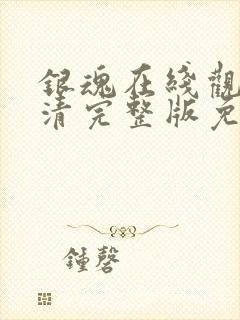 銀魂在綫觀
清完整版免
鍾磬